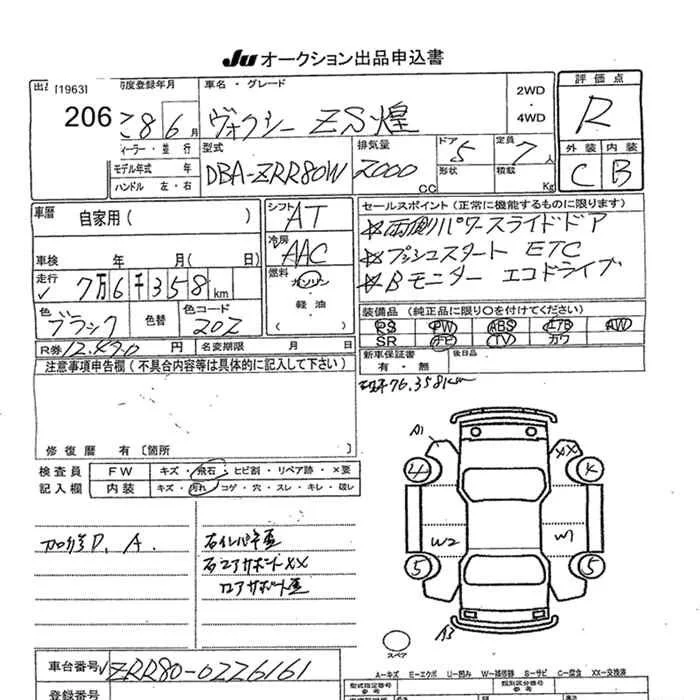 Ju オークション出品申込書
[1963]
206
初度登録年月
28 6月
ディーラー・並行
モデル年式 年
ハンドル 左・右
車名・グレード
ヴォクシー ZS煌
2WD
・
4WD
評価点
R
外装 内装
C B
型式
DBA-ZRR80W
排気量
2000
CC
ドア
5
形状
定員
7人
積載
Kg
車歴
自家用( )
車検 年 月( 日)
走行
7万6千358km
色
ブラック
色替
色コード
202
シフト
AT
冷房
AAC
燃料
ガソリン
・
軽油
・
( )
セールスポイント(正常に機能するものに限ります)
☆両側パワースライドドア
☆プッシュスタート ETC
☆Bモニター エコドライブ
装備品(純正品に限り○を付けてください)
PS PW ABS AW
SR TV カワ
新車保証書
有・無
後日品
R券 12.490円 名変期限 月 日
注意事項申告欄(不具合内容等は具体的に記入して下さい)
76.358km
修復歴 有〔箇所 〕
検査員
記入欄
FW キズ・飛石・ヒビ割・リペア跡・×要
内装 キズ・汚れ・コゲ・穴・スレ・キレ・破レ
P, A.
右インパネ歪
右コアサポートXX
ロアサポート歪
A1
XX
4
W2
W1
5
5
A3
スペア
車台番号 ZRR80-0226161
登録番号
A-キズ E-エクボ U-凹み W-補修跡 S-サビ C-腐食 XX-交換済
型式指定番号
参考
類別区分番号
参考